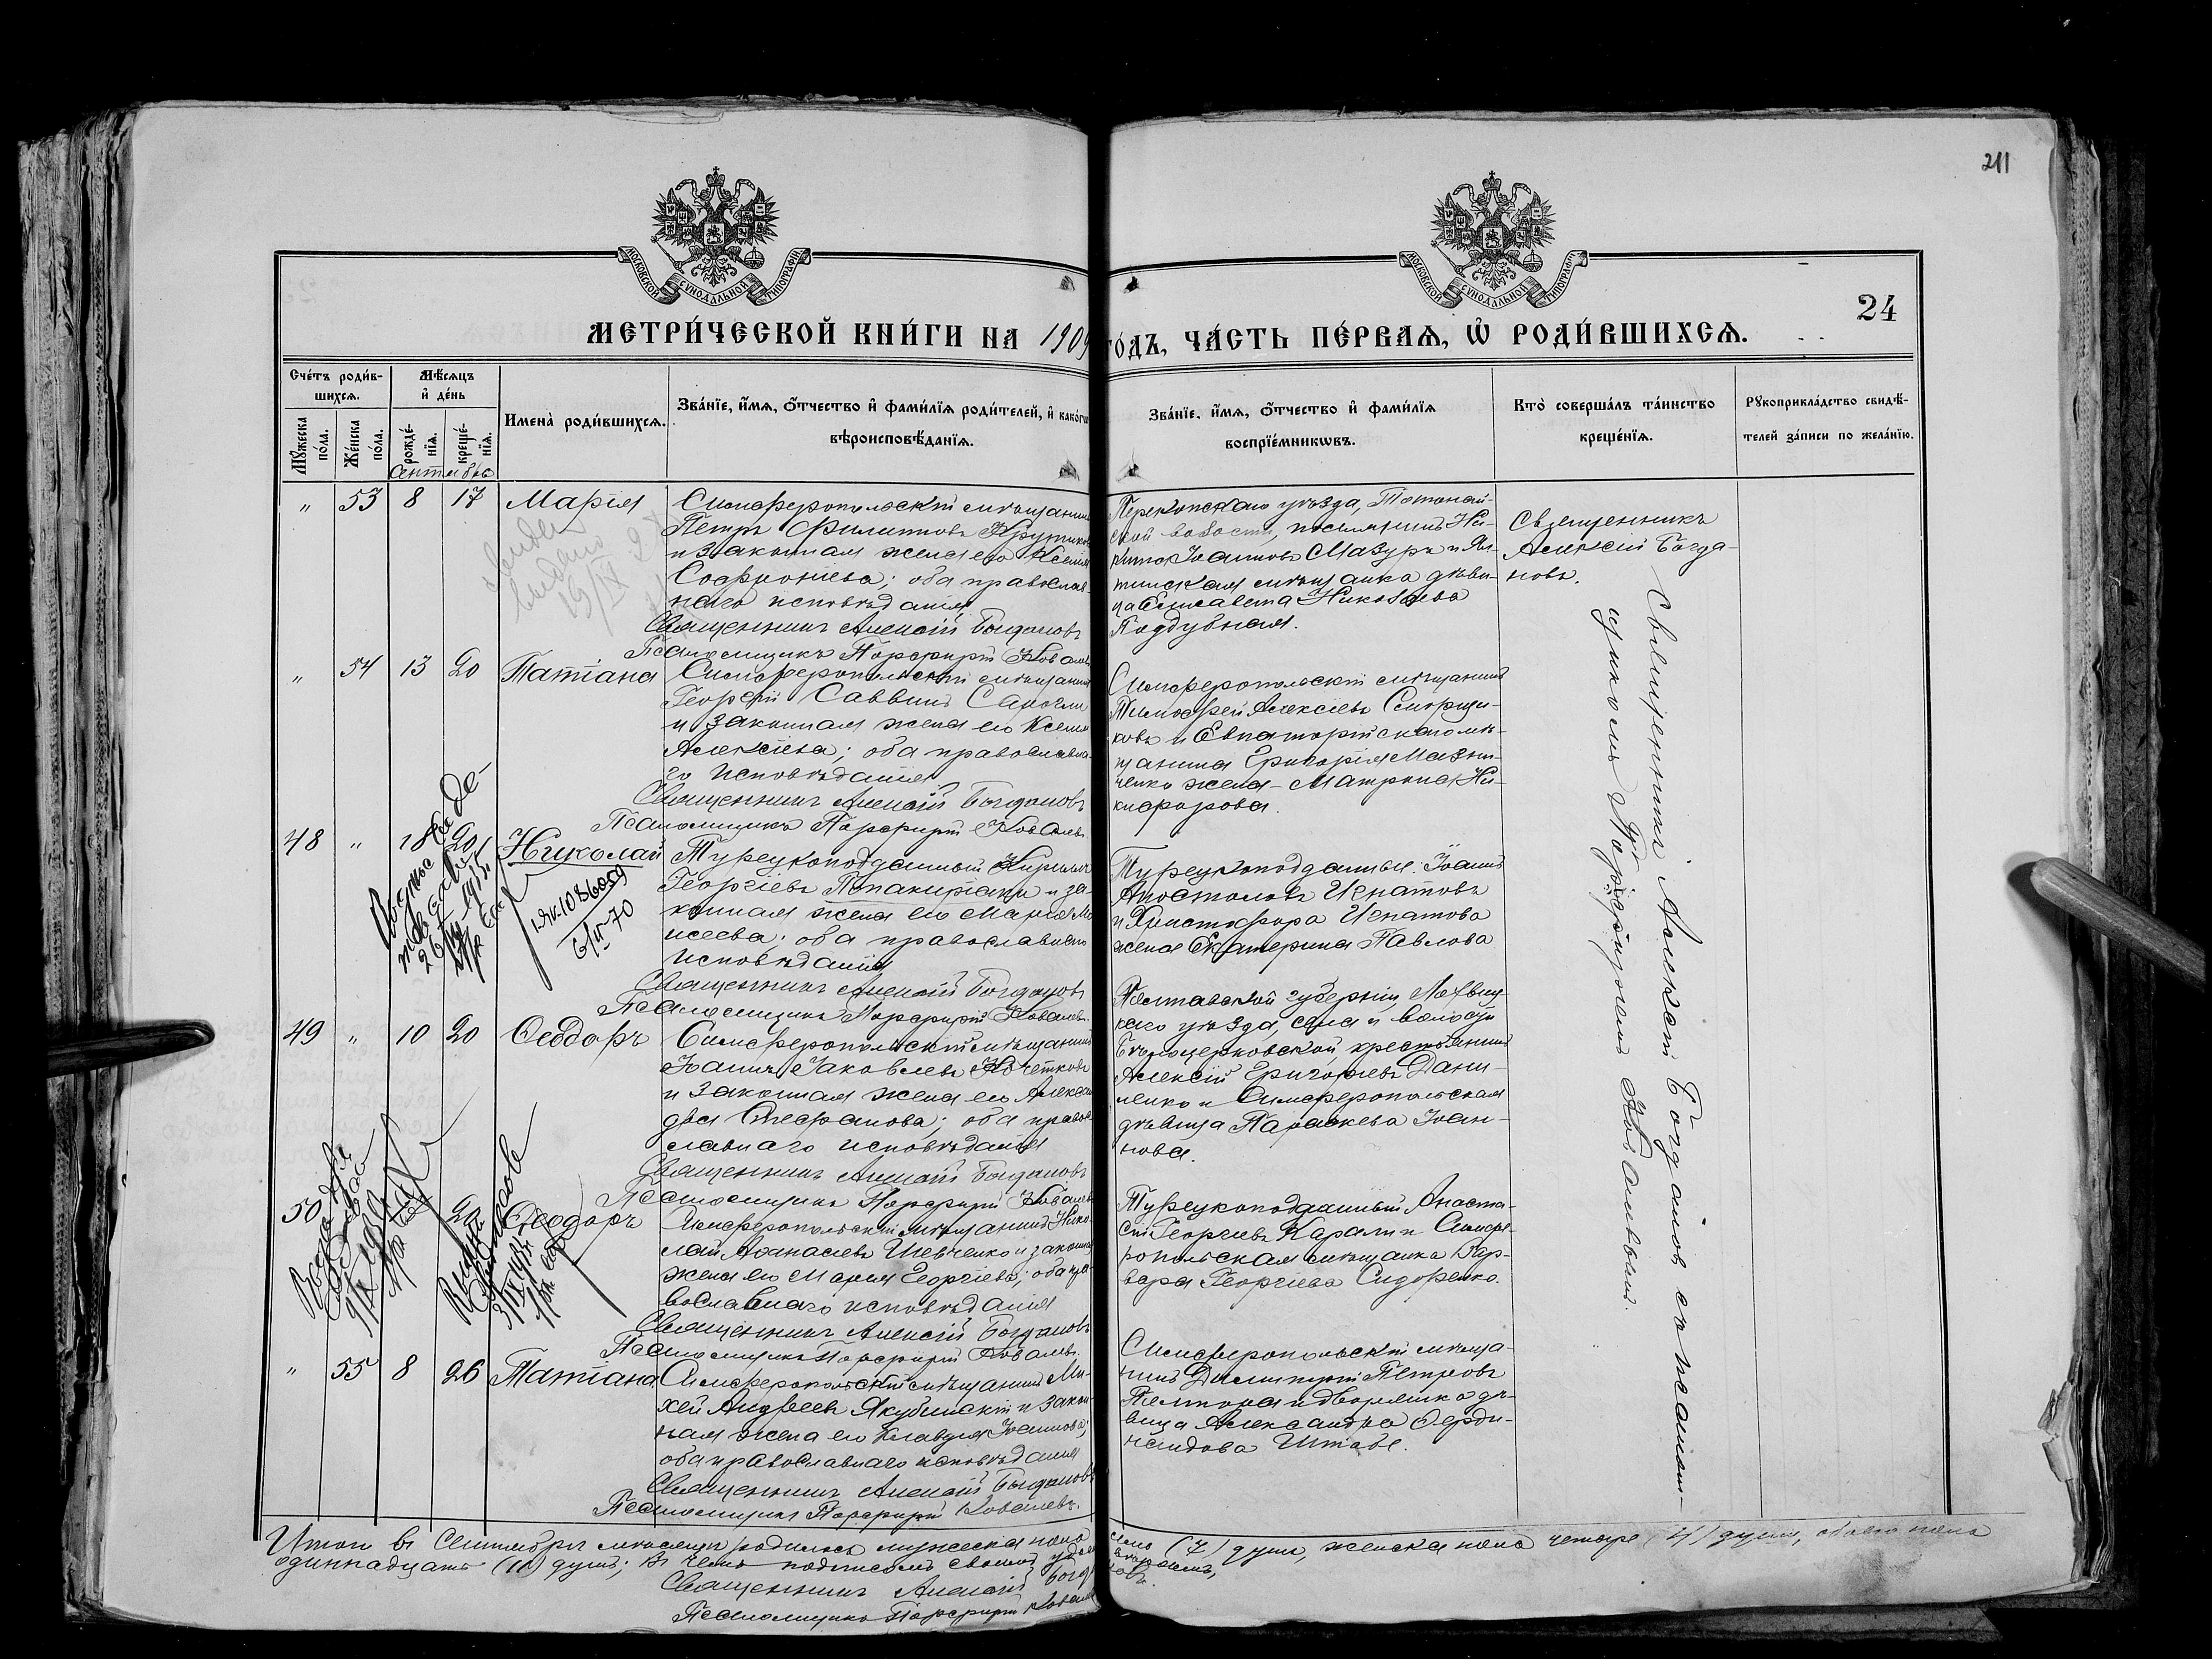 211
МОСКОВСКОЙ СѴНОДАЛЬНОЙ ТИПОГРАФІИ
МОСКОВСКОЙ СѴНОДАЛЬНОЙ ТИПОГРАФІИ
24
МЕТРИ́ЧЕСКОЙ КНИ́ГИ НА 1909
ГО́ДЪ, ЧА́СТЬ ПЕ́РВАЯ, Ѡ҆ РОДИ́ВШИХСЯ.
Сче́тъ роди́в-
шихся.
Мѣ́сяцъ
и҆ де́нь
Мꙋ́жеска
по́ла.
Же́нска
по́ла.
рожде́-
нїя.
креще́-
нїя.
Имена̀ роди́вшихся.
Зва́нїе, и҆́мя, ѻ҆́тчество и҆ фами́лїя роди́телей, и҆ како́гѡ
вѣроисповѣ́данїя.
Зва́нїе, и҆́мя, ѻ҆́тчество и҆ фами́лїя
воспрїе́мникѡвъ.
Кто̀ соверша́лъ та́инство
креще́нїя.
Рꙋкоприкла́дство свидѣ́-
телей за́писи по жела́нїю.
Сентябрь
" 53 8 17 Марія
Симферопольскій мѣщанинъ
Петръ Филипповъ Крутиков
и законная жена его Ксенія
Софроніева; оба православ
наго исповѣданія
Священникъ Алексій Богдановъ
Псаломщикъ Порфирій Ковалевъ
Перекопскаго уѣзда,
ской волости, поселянинъ Ни-
кита Іоанновъ Мазуръ и Ял-
тинская мѣщанка дѣви-
ца Елисавета Николаева
Поддубная.
Священникъ
Алексій Богда-
новъ.
Священникъ Алексій Богдановъ съ псалом-
щикомъ Порфиріемъ Ковалевымъ.
" 54 13 20 Татіана
Симферопольскій мѣщанинъ
Георгій Саввинъ
и законная жена его Ксенія
Алексіева; оба православна
го исповѣданія
Священникъ Алексій Богдановъ
Псаломщикъ Порфирій Ковалевъ
Симферопольскій мѣщанинъ
Тимофей Алексіевъ
ковъ и Евпаторійскаго мѣ-
щанина Григорія
ченко жена - Матрона Ни-
кифорова.
48 " 18 20 Николай
6/IV 70
Турецкоподданный Кириллъ
Георгіевъ и за-
конная жена его Марія Мо
исеева; оба православнаго
исповѣданія
Священникъ Алексій Богдановъ
Псаломщикъ Порфирій Ковалевъ.
Турецкоподданные: Іоаннъ
Апостоловъ Игнатовъ
и Христофора Игнатова
жена Екатерина Павлова
49 " 10 20 Ѳеодоръ
Симферопольскій мѣщанинъ
Іоаннъ Іаковлевъ Кочетковъ
и законная жена его Алексан
дра Стефанова; оба право
славнаго исповѣданія
Священникъ Алексій Богдановъ
Псаломщикъ Порфирій Ковалевъ
Полтавской губерніи, Лохвиц-
каго уѣзда, села и волости
Бѣлоцерковской, крестьянинъ
Алексій Григорьевъ Дани-
ленко и Симферопольская
дѣвица Параскева Іоан-
нова.
50 20 Ѳеодоръ
Симферопольскій мѣщанинъ Нико-
лай Аѳанасьевъ Шевченко и законная
жена его Марія Георгіева; оба пра-
вославнаго исповѣданія
Священникъ Алексій Богдановъ
Псаломщикъ Порфирій Ковалевъ.
Турецкоподданный Анаста-
сій Георгіевъ Карали и Симфе-
ропольская мѣщанка Вар-
вара Георгіева Сидоренко.
" 55 8 26 Татіана
Симферопольскій мѣщанинъ Ми-
хей Андреевъ Якубинскій и закон-
ная жена его Клавдія Іоаннова;
оба православнаго исповѣданія
Священникъ Алексій Богдановъ
Псаломщикъ Порфирій Ковалевъ.
Симферопольскій мѣща-
нинъ Димитрій Петровъ
и дворянка дѣ-
вица Александра Ферди-
нандова Штабе.
Итого въ Сентябрѣ мѣсяцѣ родилось мужеска пола
семь (7) душъ, женска пола четыре (4) души, обоего пола
одиннадцать (11) душъ; въ чемъ подписомъ своимъ
Священникъ Алексій Богдановъ.
Псаломщикъ Порфирій Ковалевъ